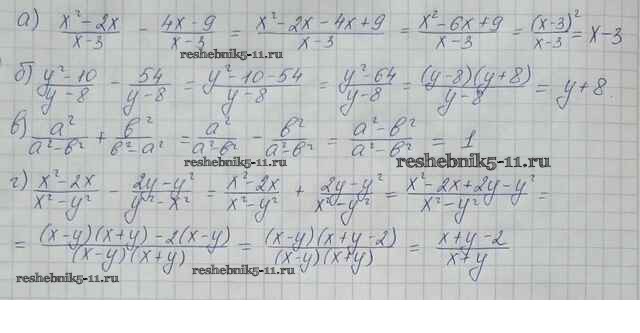 а) (x²-2x)/(x-3) - (4x-9)/(x-3) = (x²-2x-4x+9)/(x-3) = (x²-6x+9)/(x-3) = (x-3)²/(x-3) = x-3
reshebnik5-11.ru
б) (y²-10)/(y-8) - 54/(y-8) = (y²-10-54)/(y-8) = (y²-64)/(y-8) = (y-8)(y+8)/(y-8) = y+8.
reshebnik5-11.ru
в) a²/(a²-b²) + b²/(b²-a²) = a²/(a²-b²) - b²/(a²-b²) = (a²-b²)/(a²-b²) = 1
reshebnik5-11.ru
reshebnik5-11.ru
г) (x²-2x)/(x²-y²) - (2y-y²)/(y²-x²) = (x²-2x)/(x²-y²) + (2y-y²)/(x²-y²) = (x²-2x+2y-y²)/(x²-y²) =
reshebnik5-11.ru
= ((x-y)(x+y)-2(x-y))/((x-y)(x+y)) = (x-y)(x+y-2)/((x-y)(x+y)) = (x+y-2)/(x+y)
reshebnik5-11.ru
reshebnik5-11.ru